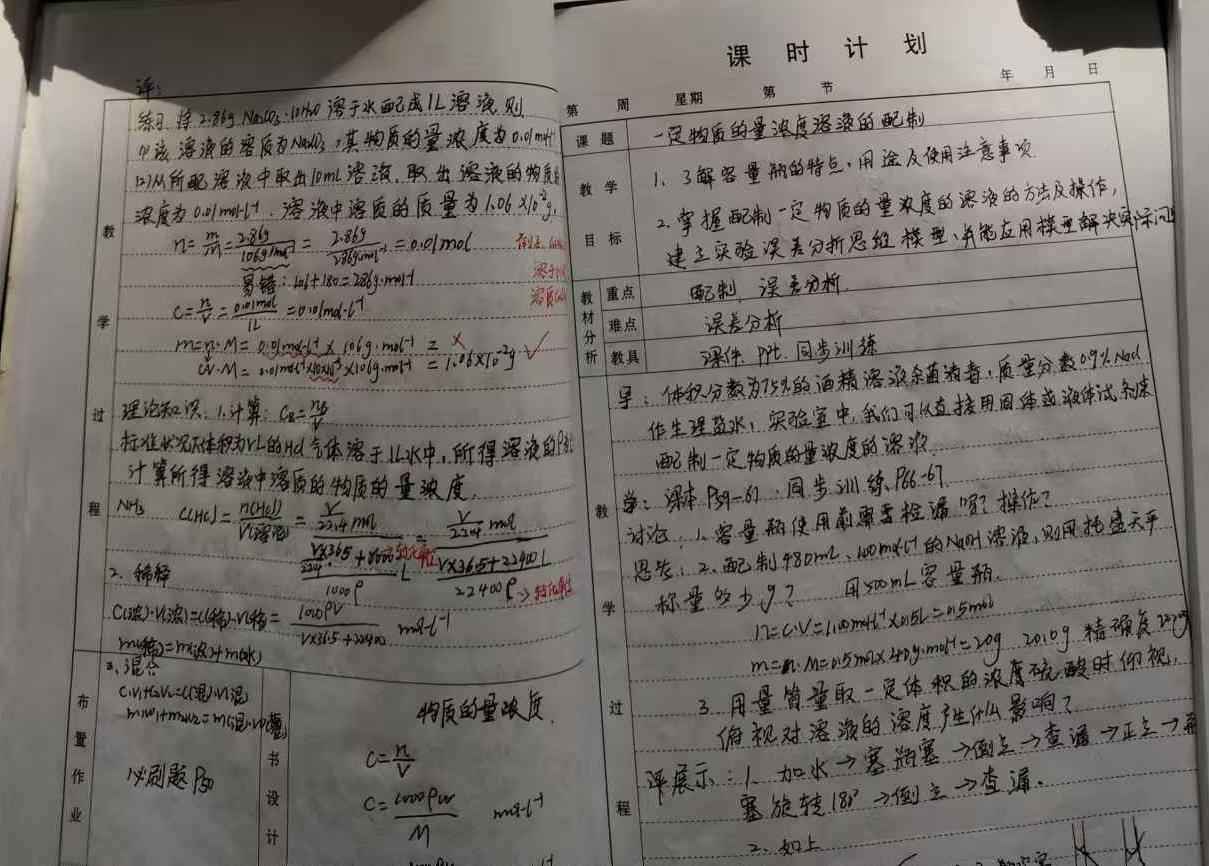 评:
练习 将2.86g Na₂CO₃·10H₂O溶于水配成1L溶液则
(1)该溶液的溶质为Na₂CO₃,其物质的量浓度为0.01mol·l⁻¹
(2)从所配溶液中取出10mL溶液,取出溶液的物质的
浓度为0.01mol·l⁻¹,溶液中溶质的质量为1.06×10⁻²g,
n=m/M=2.86g/106g/mol=2.86g/286g·mol⁻¹=0.01mol
易错:106+180=286g·mol⁻¹
C=n/V=0.01mol/1L=0.01mol·l⁻¹
m=n·M=0.01mol·l⁻¹×106g·mol⁻¹= ×
CV·M=0.01mol·l⁻¹×10×10⁻³×106g·mol⁻¹=1.06×10⁻²g √
教学过程
理论知识:1.计算:C_B=n_B/V
标准状况下体积为VL的HCl气体溶于1L水中,所得溶液的
计算所得溶液中溶质的物质的量浓度.
NH₃ C(HCl)=n(HCl)/V(溶液)=(V/22.4 mol)/((V×36.5/22.4+1000)/1000ρ L)=(V/22.4 mol)/((V×36.5+22400)/22400ρ L)
2.稀释
C(浓)·V(浓)=C(稀)·V(稀) =1000ρV/(V×36.5+22400) mol·l⁻¹
m(稀)=m(浓)+m(水)
3.混合
C₁V₁+C₂V₂=C(混)·V(混)
m₁w₁+m₂w₂=m(混)·w(混)
布置作业
必刷题P50
书设计
物质的量浓度.
C=n/V
C=1000ρw/M mol·l⁻¹
课时计划
年 月 日
第 周 星期 第 节
课题 一定物质的量浓度溶液的配制
教学目标
1、了解容量瓶的特点,用途及使用注意事项.
2.掌握配制一定物质的量浓度的溶液的方法及操作,
建立实验误差分析思维模型,并能应用模型解决实际问题
教材分析
重点 配制、误差分析.
难点 误差分析
教具 课件.PPt.同步训练
教学过程
导:体积分数为75%的酒精溶液杀菌消毒,质量分数0.9%NaCl
作生理盐水,实验室中,我们可以直接用固体或液体试剂来
配制一定物质的量浓度的溶液.
学:课本P59-61.同步训练P66-67
讨论:1.容量瓶使用前需要检漏吗?操作?
思考:2.配制480mL、1.00mol·l⁻¹的NaOH溶液,则用托盘天平
称量多少g? 用500mL容量瓶.
n=C·V=1.00mol·l⁻¹×0.5L=0.5mol
m=n·M=0.5mol×40g·mol⁻¹=20g 20.0g 精确度
3.用量筒量取一定体积的浓度硫酸时仰视,
俯视对溶液的溶度产生什么影响?
评展示:1、加水→塞瓶塞→倒立→查漏→正立→再
塞旋转180°→倒立→查漏.
2.如上